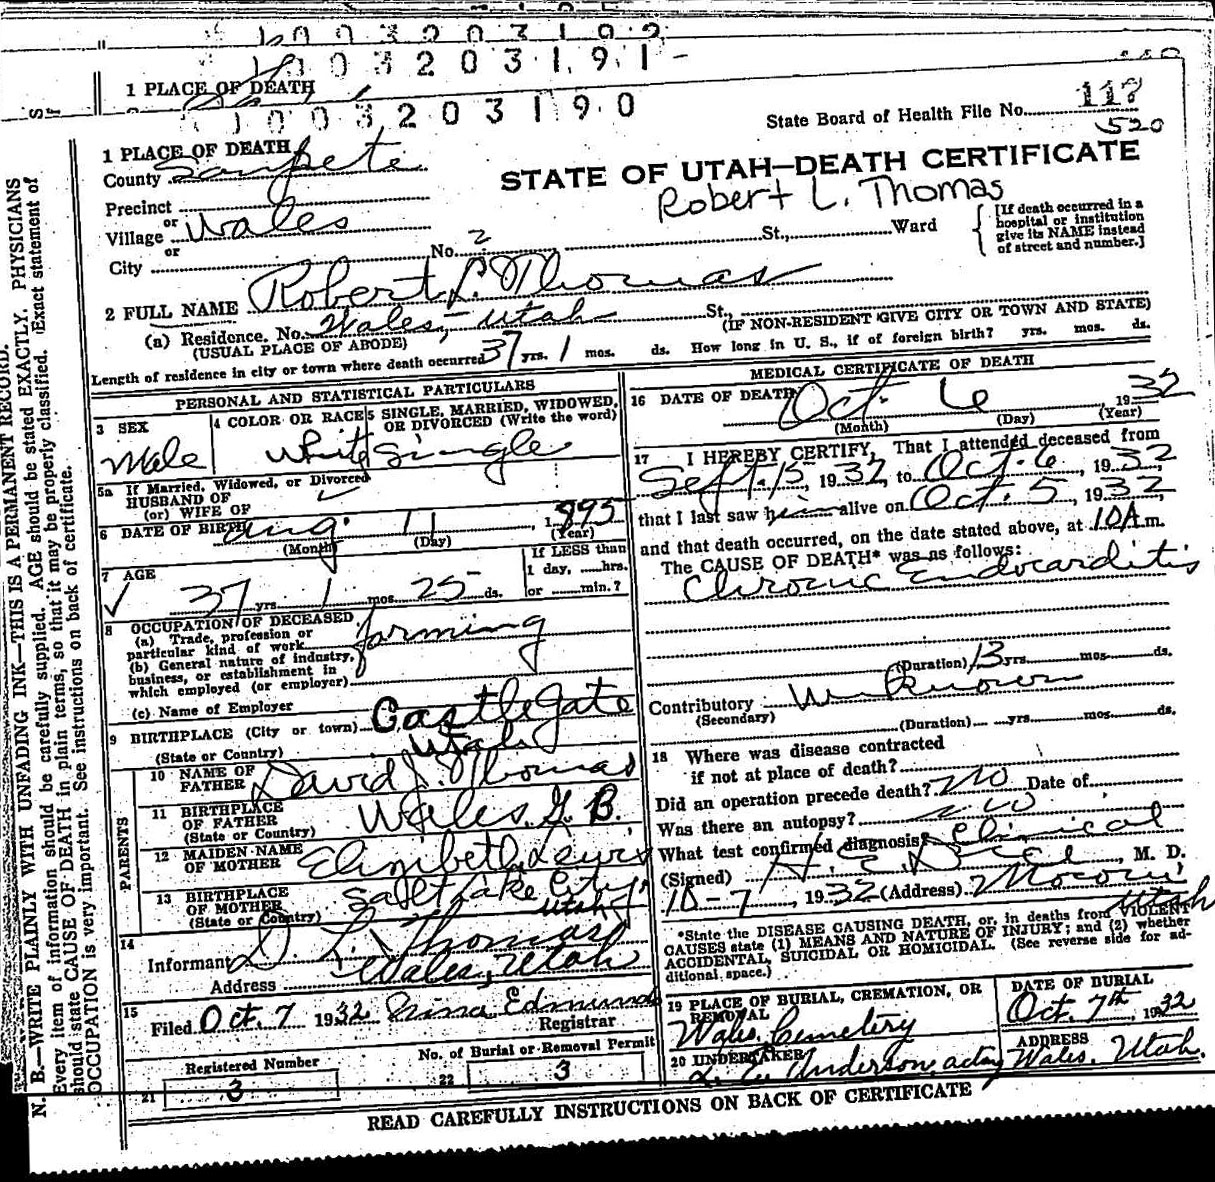 1003203192
1003203191-
1 PLACE OF DEATH
1003203190
State Board of Health File No. 118
520
1 PLACE OF DEATH
County Sanpete
STATE OF UTAH—DEATH CERTIFICATE
Robert L. Thomas
Precinct
or
Village Wales
or
City
No. 2 St., Ward
[If death occurred in a hospital or institution give its NAME instead of street and number.]
2 FULL NAME Robert L. Thomas
(a) Residence. No. Wales, Utah St.,
(USUAL PLACE OF ABODE)
(IF NON-RESIDENT GIVE CITY OR TOWN AND STATE)
Length of residence in city or town where death occurred 37 yrs. 1 mos. ds. How long in U. S., if of foreign birth? yrs. mos. ds.
PERSONAL AND STATISTICAL PARTICULARS
3 SEX
Male
4 COLOR OR RACE
White
5 SINGLE, MARRIED, WIDOWED, OR DIVORCED (Write the word)
Single
5a If Married, Widowed, or Divorced
HUSBAND OF
(or) WIFE OF
6 DATE OF BIRTH Aug. 11, 1895
(Month) (Day) (Year)
7 AGE
37 yrs. 1 mos. 25 ds.
If LESS than
1 day, hrs.
or min.?
8 OCCUPATION OF DECEASED
(a) Trade, profession or
particular kind of work farming
(b) General nature of industry,
business, or establishment in
which employed (or employer)
(c) Name of Employer
9 BIRTHPLACE (City or town) Castle Gate
(State or Country) Utah
PARENTS
10 NAME OF
FATHER David J. Thomas
11 BIRTHPLACE
OF FATHER
(State or Country) Wales, G. B.
12 MAIDEN NAME
OF MOTHER Elizibeth Lewis
13 BIRTHPLACE
OF MOTHER
(State or Country) Salt Lake City, Utah
14
Informant D. L. Thomas
Address Wales, Utah
15
Filed Oct. 7 1932 Nina Edmund
Registrar
Registered Number
21 3
No. of Burial or Removal Permit
22 3
MEDICAL CERTIFICATE OF DEATH
16 DATE OF DEATH Oct. 6, 1932
(Month) (Day) (Year)
17 I HEREBY CERTIFY, That I attended deceased from
Sept. 15, 1932 to Oct. 6, 1932
that I last saw him alive on Oct. 5, 1932,
and that death occurred, on the date stated above, at 10A m.
The CAUSE OF DEATH* was as follows:
Chronic Endocarditis
(Duration) 13 yrs. mos. ds.
Contributory Unknown
(Secondary)
(Duration) yrs. mos. ds.
18 Where was disease contracted
if not at place of death?
Did an operation precede death? no Date of
Was there an autopsy? no
What test confirmed diagnosis? Clinical
(Signed) H. C. , M. D.
10-7, 1932 (Address) Moroni, Utah
*State the DISEASE CAUSING DEATH, or, in deaths from VIOLENT
CAUSES state (1) MEANS AND NATURE OF INJURY; and (2) whether
ACCIDENTAL, SUICIDAL OR HOMICIDAL. (See reverse side for ad-
ditional space.)
19 PLACE OF BURIAL, CREMATION, OR
REMOVAL
Wales Cemetery
DATE OF BURIAL
Oct. 7th, 1932
20 UNDERTAKER
Anderson, acting
ADDRESS
Wales, Utah.
READ CAREFULLY INSTRUCTIONS ON BACK OF CERTIFICATE
N. B.—WRITE PLAINLY WITH UNFADING INK—THIS IS A PERMANENT RECORD.
Every item of information should be carefully supplied. AGE should be stated EXACTLY. PHYSICIANS
should state CAUSE OF DEATH in plain terms, so that it may be properly classified. Exact statement of
OCCUPATION is very important. See instructions on back of certificate.